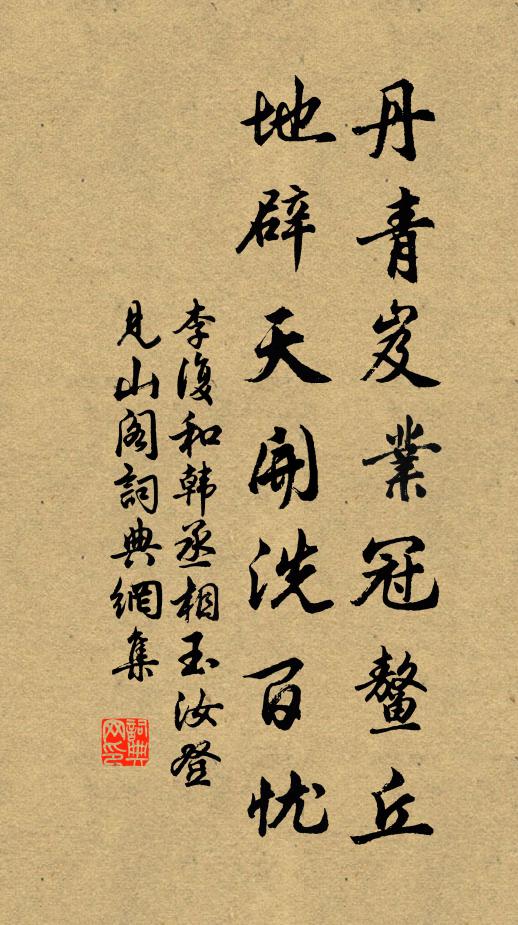 丹青岌業冠鼇丘
地辟天開洗百忧
李復和韩丞相玉汝登
見山阁詞典網集
詞典网印